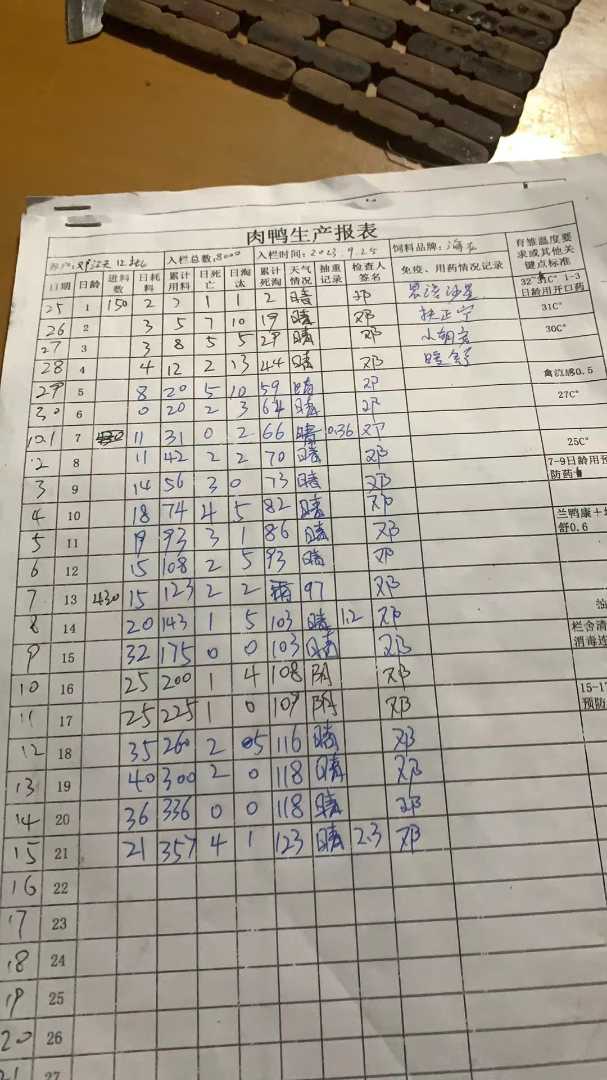 肉鸭生产报表
入栏总数:8000 入栏时间:2023.9.25 饲料品牌:海大 有雏温度要求或其他关键点标准
日期 日龄 进料数 日耗料 累计用料 日死亡 日淘汰 累计死淘 天气情况 抽重记录 检查人签名 免疫、用药情况记录
25 1 150 2 2 1 1 2 晴 邓 32 31C° 1-3日龄用开口药
26 2 3 5 7 10 19 晴 邓 扶正宁 31C°
27 3 3 8 5 5 29 晴 邓 30C°
28 4 4 12 2 13 44 晴 邓
29 5 8 20 5 10 59 晴 邓 0.5
30 6 0 20 2 3 64 晴 邓 27C°
10.1 7 11 31 0 2 66 晴 0.36 邓
2 8 11 42 2 2 70 晴 邓 25C°
3 9 14 56 3 0 73 晴 邓 7-9日龄用预防药
4 10 18 74 4 5 82 晴 邓
5 11 19 93 3 1 86 晴 邓 兰鸭康+ 舒0.6
6 12 15 108 2 5 93 晴 邓
7 13 430 15 123 2 2 97 邓
8 14 20 143 1 5 103 晴 1.2 邓
9 15 32 175 0 0 103 晴 邓 栏舍清 消毒连
10 16 25 200 1 4 108 阴 邓
11 17 25 225 1 0 109 阴 邓 15-17 预防
12 18 35 260 2 5 116 晴 邓
13 19 40 300 2 0 118 晴 邓
14 20 36 336 0 0 118 晴 邓
15 21 21 357 4 1 123 晴 2.3 邓
16 22
17 23
18 24
19 25
20 26
21 27